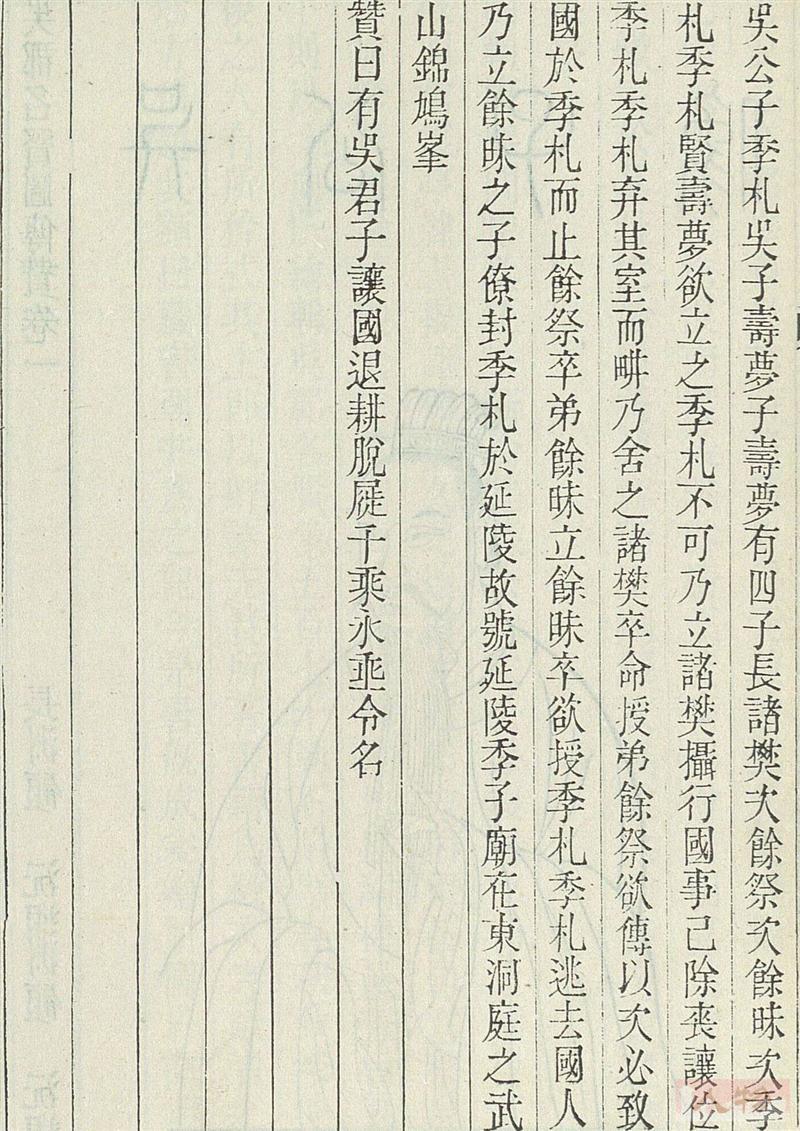 吳公子季札吳子壽夢子壽夢有四子長諸樊次餘祭次餘昧次季
札季札賢壽夢欲立之季札不可乃立諸樊攝行國事己除喪讓位
季札季札弃其室而畊乃舍之諸樊卒命授弟餘祭欲傳以次必致
國於季札而止餘祭卒弟餘昧立餘昧卒欲授季札季札逃去國人
乃立餘昧之子僚封季札於延陵故號延陵季子廟在東洞庭之武
山錦鳩峯
贊曰有吳君子讓國退耕脫屣千乘永垂令名